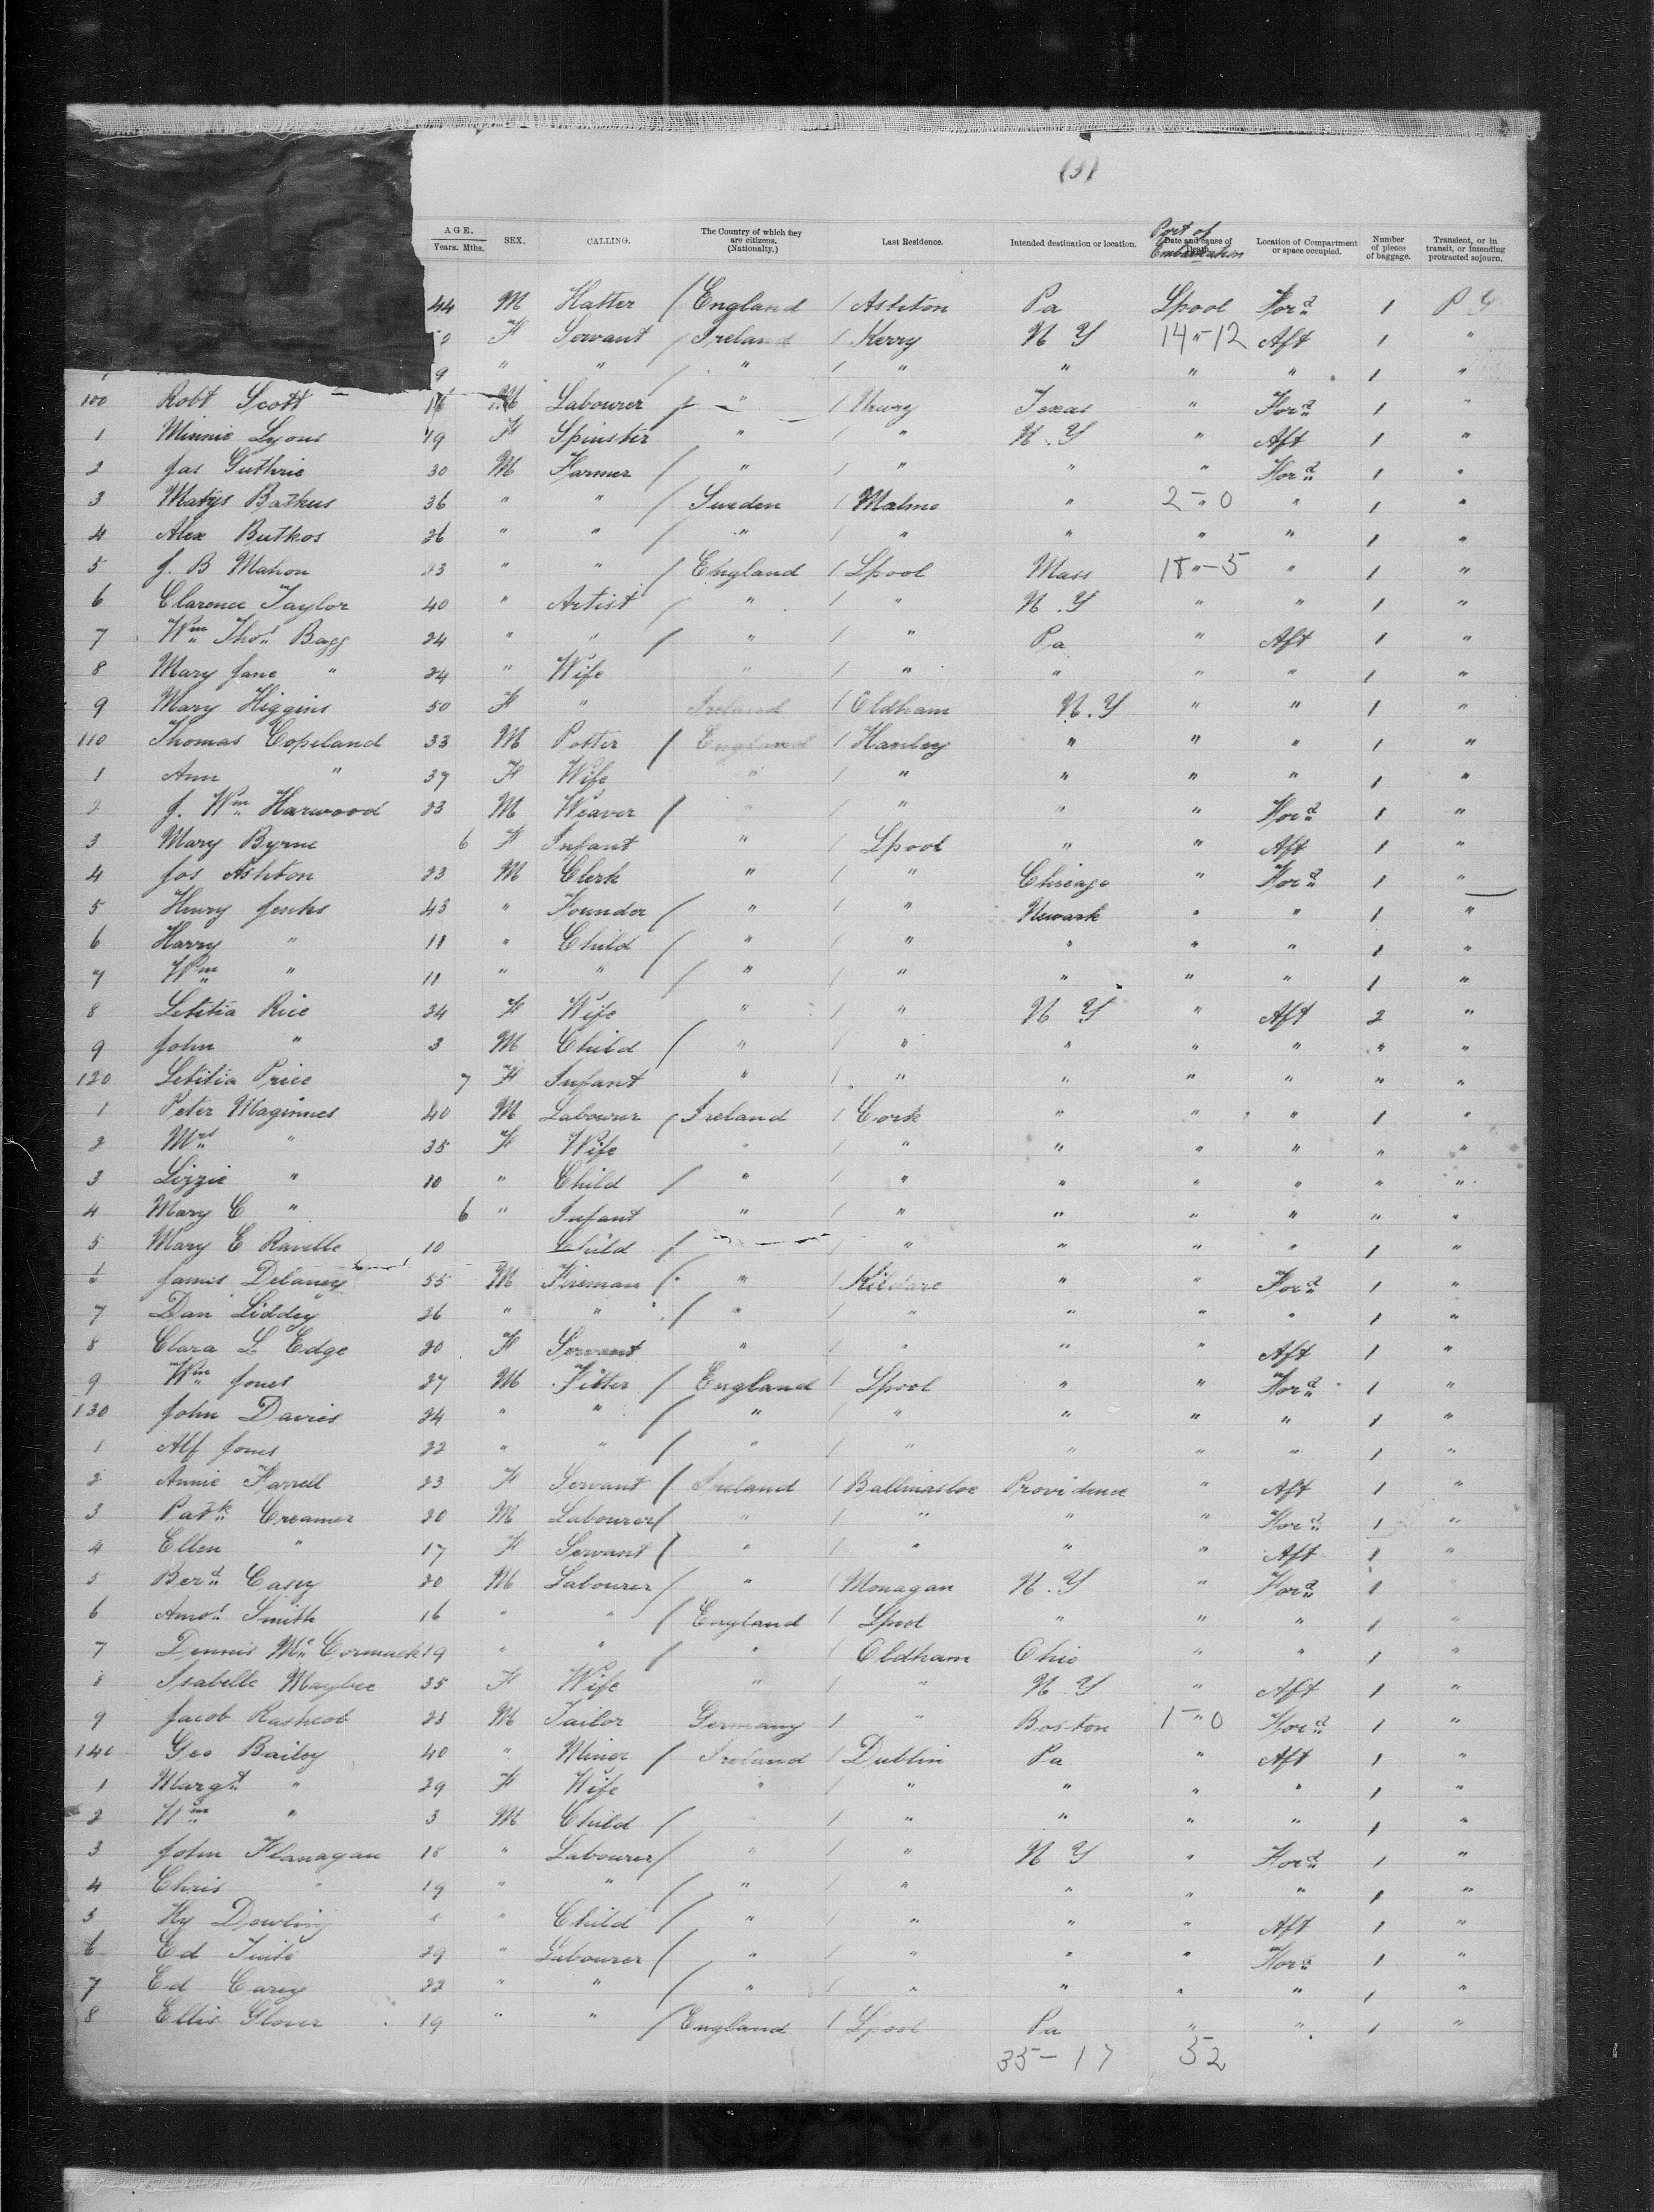 (3)
AGE. SEX. CALLING. The Country of which they are citizens. (Nationalty.) Last Residence. Intended destination or location. Date and cause of Death. Port of Embarkation Location of Compartment or space occupied. Number of pieces of baggage. Transient, or in transit, or intending protracted sojourn.
Years. Mths.
44 M Hatter / England / Ashton Pa Lpool Ford 1 P
F Servant / Ireland / Kerry N Y 14 " 12 Aft 1 "
9 " " / " / " " " " 1 "
100 Robt Scott 16 M Labourer / " / Newry Texas " Ford 1 "
1 Minnie Lyons 19 F Spinster " / " N.Y " Aft 1 "
2 Jas Guthrie 30 M Farmer / " / " " " Ford 1 "
3 Matys Batkus 36 " " / Sweden / Malmo " 2 " 0 " 1 "
4 Alex Butkos 26 " " / " / " " " " 1 "
5 J. B Mahon 23 " " / England / Lpool Mass 18 " 5 " 1 "
6 Clarence Taylor 40 " Artist / " / " N.Y " " 1 "
7 Wm Thos Bagg 24 " " / " / " Pa " Aft 1 "
8 Mary Jane " 24 " Wife " / " " " " 1 "
9 Mary Higgins 50 F " Ireland / Oldham N.Y " " 1 "
110 Thomas Copeland 33 M Potter / England / Hanley " " " 1 "
1 Ann " 37 F Wife " / " " " " 1 "
2 J. Wm Harwood 23 M Weaver / " / " " " Ford 1 "
3 Mary Byrne 6 F Infant " / Lpool " " Aft 1 "
4 Jos Ashton 23 M Clerk " / " Chicago " Ford 1 "
5 Henry Jenks 43 " Founder / " / " Newark " " 1 "
6 Harry " 11 " Child / " / " " " " 1 "
7 Wm " 11 " " / " / " " " " 1 "
8 Letitia Rice 24 F Wife " / " N Y " Aft 2 "
9 John " 3 M Child / " / " " " " " "
120 Letitia Price 7 F Infant " / " " " " " "
1 Peter Maginnes 40 M Labourer / Ireland / Cork " " " 1 "
2 Mrs " 35 F Wife " / " " " " " "
3 Lizzie " 10 " Child / " / " " " " " "
4 Mary C " 6 " Infant " / " " " " " "
5 Mary E Ravelle 10 Child / " / " " " " 1 "
James Delaney 55 M Fireman / " / Kildare " " Ford 1 "
7 Dan Liddey 26 " " / " / " " " " 1 "
8 Clara L Edge 20 F Servant " / " " " Aft 1 "
9 Wm Jones 27 M Fitter / England / Lpool " " Ford 1 "
130 John Davies 24 " " / " / " " " " 1 "
1 Alf Jones 22 " " / " / " " " " 1 "
2 Annie Farrell 23 F Servant / Ireland / Ballinasloe Providence " Aft 1 "
3 Patk Creamer 20 M Labourer / " / " " " Ford 1 "
4 Ellen " 17 F Servant / " / " " " Aft 1 "
5 Berd Casey 20 M Labourer / " / Monagan N.Y " Ford 1 "
6 Amos Smith 16 " " / England / Lpool " " " 1 "
7 Dennis Mc Cormack 19 " " / " / Oldham Ohio " " 1 "
8 Isabelle Maybee 35 F Wife " / " N.Y " Aft 1 "
9 Jacob Rasheob 23 M Tailor Germany / " Boston 1 " 0 Ford 1 "
140 Geo Bailey 40 " Miner / Ireland / Dublin Pa " Aft 1 "
1 Margt " 29 F Wife " / " " " " 1 "
2 Wm " 3 M Child / " / " " " " 1 "
3 John Flanagan 18 " Labourer / " / " N Y " Ford 1 "
4 Chris " 19 " " / " / " " " " 1 "
5 Hy Dowling " Child / " / " " " Aft 1 "
6 Ed Tuite 29 " Labourer / " / " " " Ford 1 "
7 Ed Carey 22 " " / " / " " " " 1 "
8 Ellis Glover 19 " " / England / Lpool Pa " " 1 "
35 - 17 52